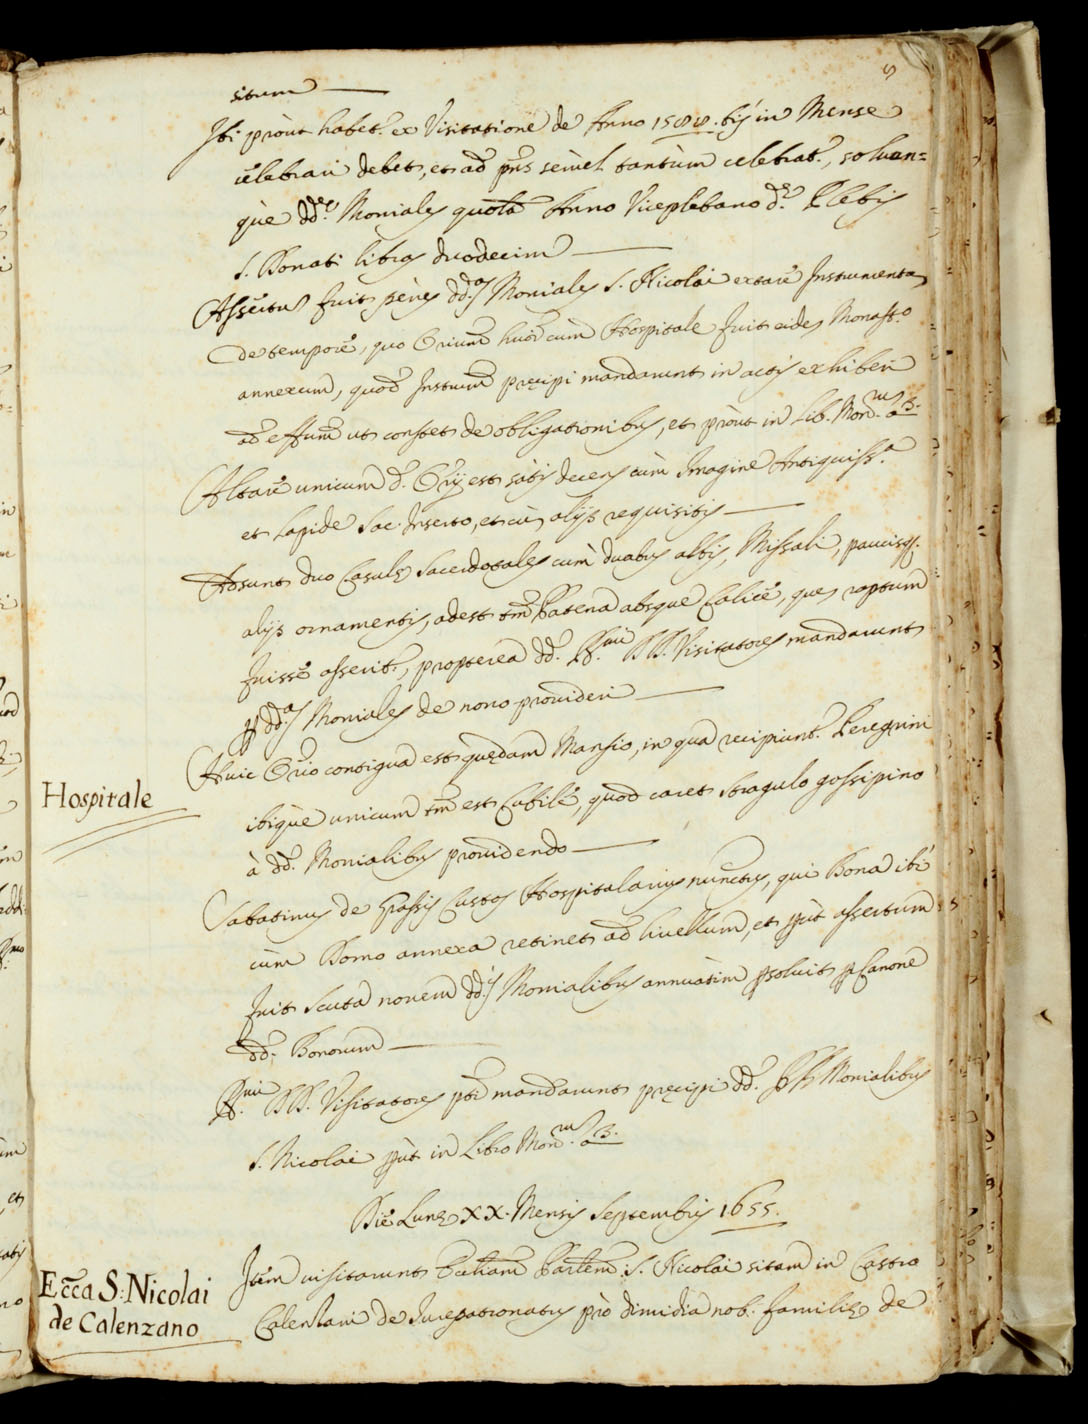 9
situm
Ibi prout habet.r ex Visitatione de Anno 1588. bis in Mense
celebrari debet, et ad pns semel tantùm celebrat.r, soluun=
què dd.e Moniales quolt Anno Viceplebano d.e Plebis
S. Donati libras duodecim
Assertu fuit penes dd.as Moniales S. Nicolai extare Instrumenta
de tempore, quo Orium huiōi cum Hospitale fuit eidē Monast.o
annexum, quod Instrum precipi mandarunt in actis exhiberi
ad effum ut constet de obligationibus, et prout in Lib. Mon.m a 3.
Altare unicum d. Orij est satis decens cum Imagine Antiquiss.a
et Lapide Sac. Inserto, et cū alijs requisitis
Adsunt duo Casulę Sacerdotales cum duabus albis, Missali, paucisq.
alijs ornamentis, adest tm̄ Patena absque Calice, que raptum
fuisse asserit.r, propterea dd. Ill.mi DD. Visitatores mandarunt
p dd.as Moniales de nouo prouideri
Hospitale
Huic Orio contigua est quędam Mansio, in qua recipiunt.r Peregrini
ibique unicum tm̄ est Cubile, quod caret stragulo gossipino
à dd. Monialibus prouidendo
Sabatinus de Grassis Custos Hospitalarius nunctus, qui Bona ibi
cum Domo annexa retinet ad liuellum, et put assertum
fuit scuta nouem dd.is Monialibus annuatim psoluit p Canone
dd. Bonorum
Ill.mi DD. Visitatores pti mandarunt pręcipi dd. RR. Monialibus
S. Nicolai put in Libro Mon.m a 3.
Die Lunę XX. Mensis Septembris 1655.
Ecca S: Nicolai
de Calenzano
Item uisitarunt Eccliam Parlem S. Nicolai sitam in Castro
Calenzani de Iurepatronatus pro dimidia nob. familię de